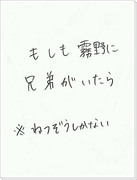 もしも霧野に
兄弟がいたら
※ねつぞうしかない